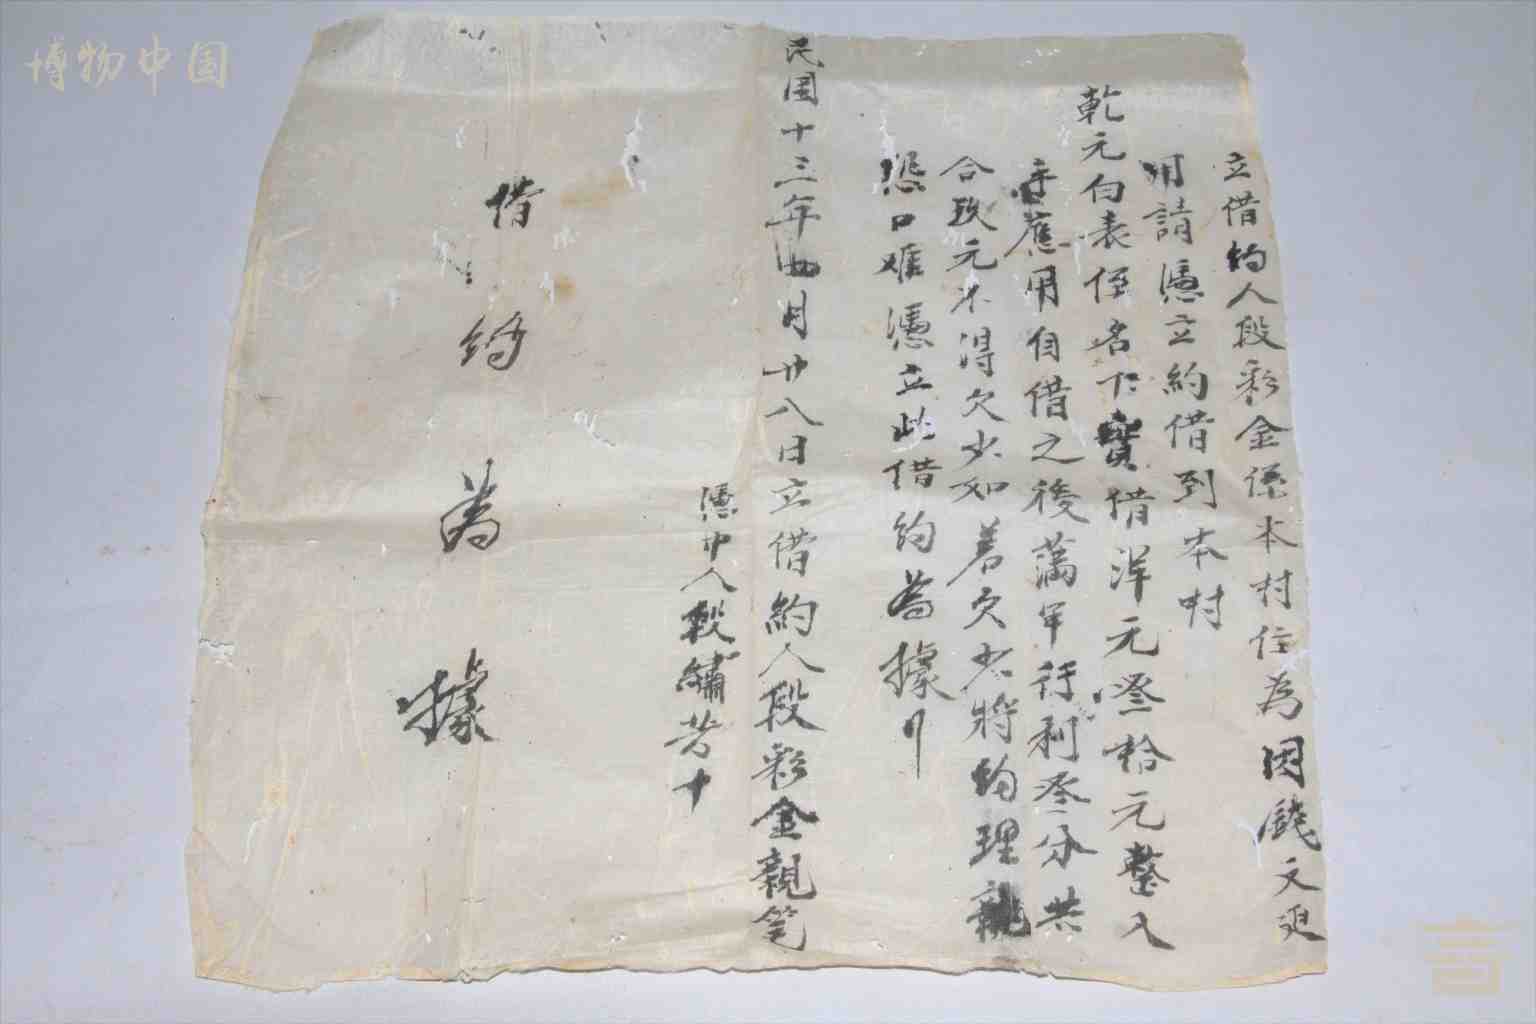 博物中国
立借約人段彩金係本村住為因錢文廹
用請憑立約借到本村
乾元白表侄名下實借洋元叄拾元整入
手應用自借之後滿年行利叄分共
合玖元不得欠少如若欠少將約理
恐口难憑立此借約為據
民国十三年四月廿八日立借約人段彩金親笔
憑中人段繡芳十
借約為據